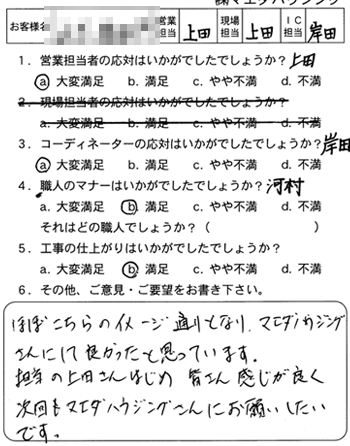 ㈱マエダハウジング
お客様名 営業担当 上田 現場担当 上田 IC担当 岸田
1．営業担当者の応対はいかがでしたでしょうか？上田
a. 大変満足 b. 満足 c. やや不満 d. 不満
2．現場担当者の応対はいかがでしたでしょうか？
a. 大変満足 b. 満足 c. やや不満 d. 不満
3．コーディネーターの応対はいかがでしたでしょうか？岸田
a. 大変満足 b. 満足 c. やや不満 d. 不満
4．職人のマナーはいかがでしたでしょうか？河村
a. 大変満足 b. 満足 c. やや不満 d. 不満
それはどの職人でしょうか？（ ）
5．工事の仕上がりはいかがでしたでしょうか？
a. 大変満足 b. 満足 c. やや不満 d. 不満
6．その他、ご意見・ご要望をお書き下さい。
ほぼこちらのイメージ通りとなり、マエダハウジング
さんにして良かったと思っています。
担当の上田さんはじめ 皆さん感じが良く
次回もマエダハウジングさんにお願いしたい
です。